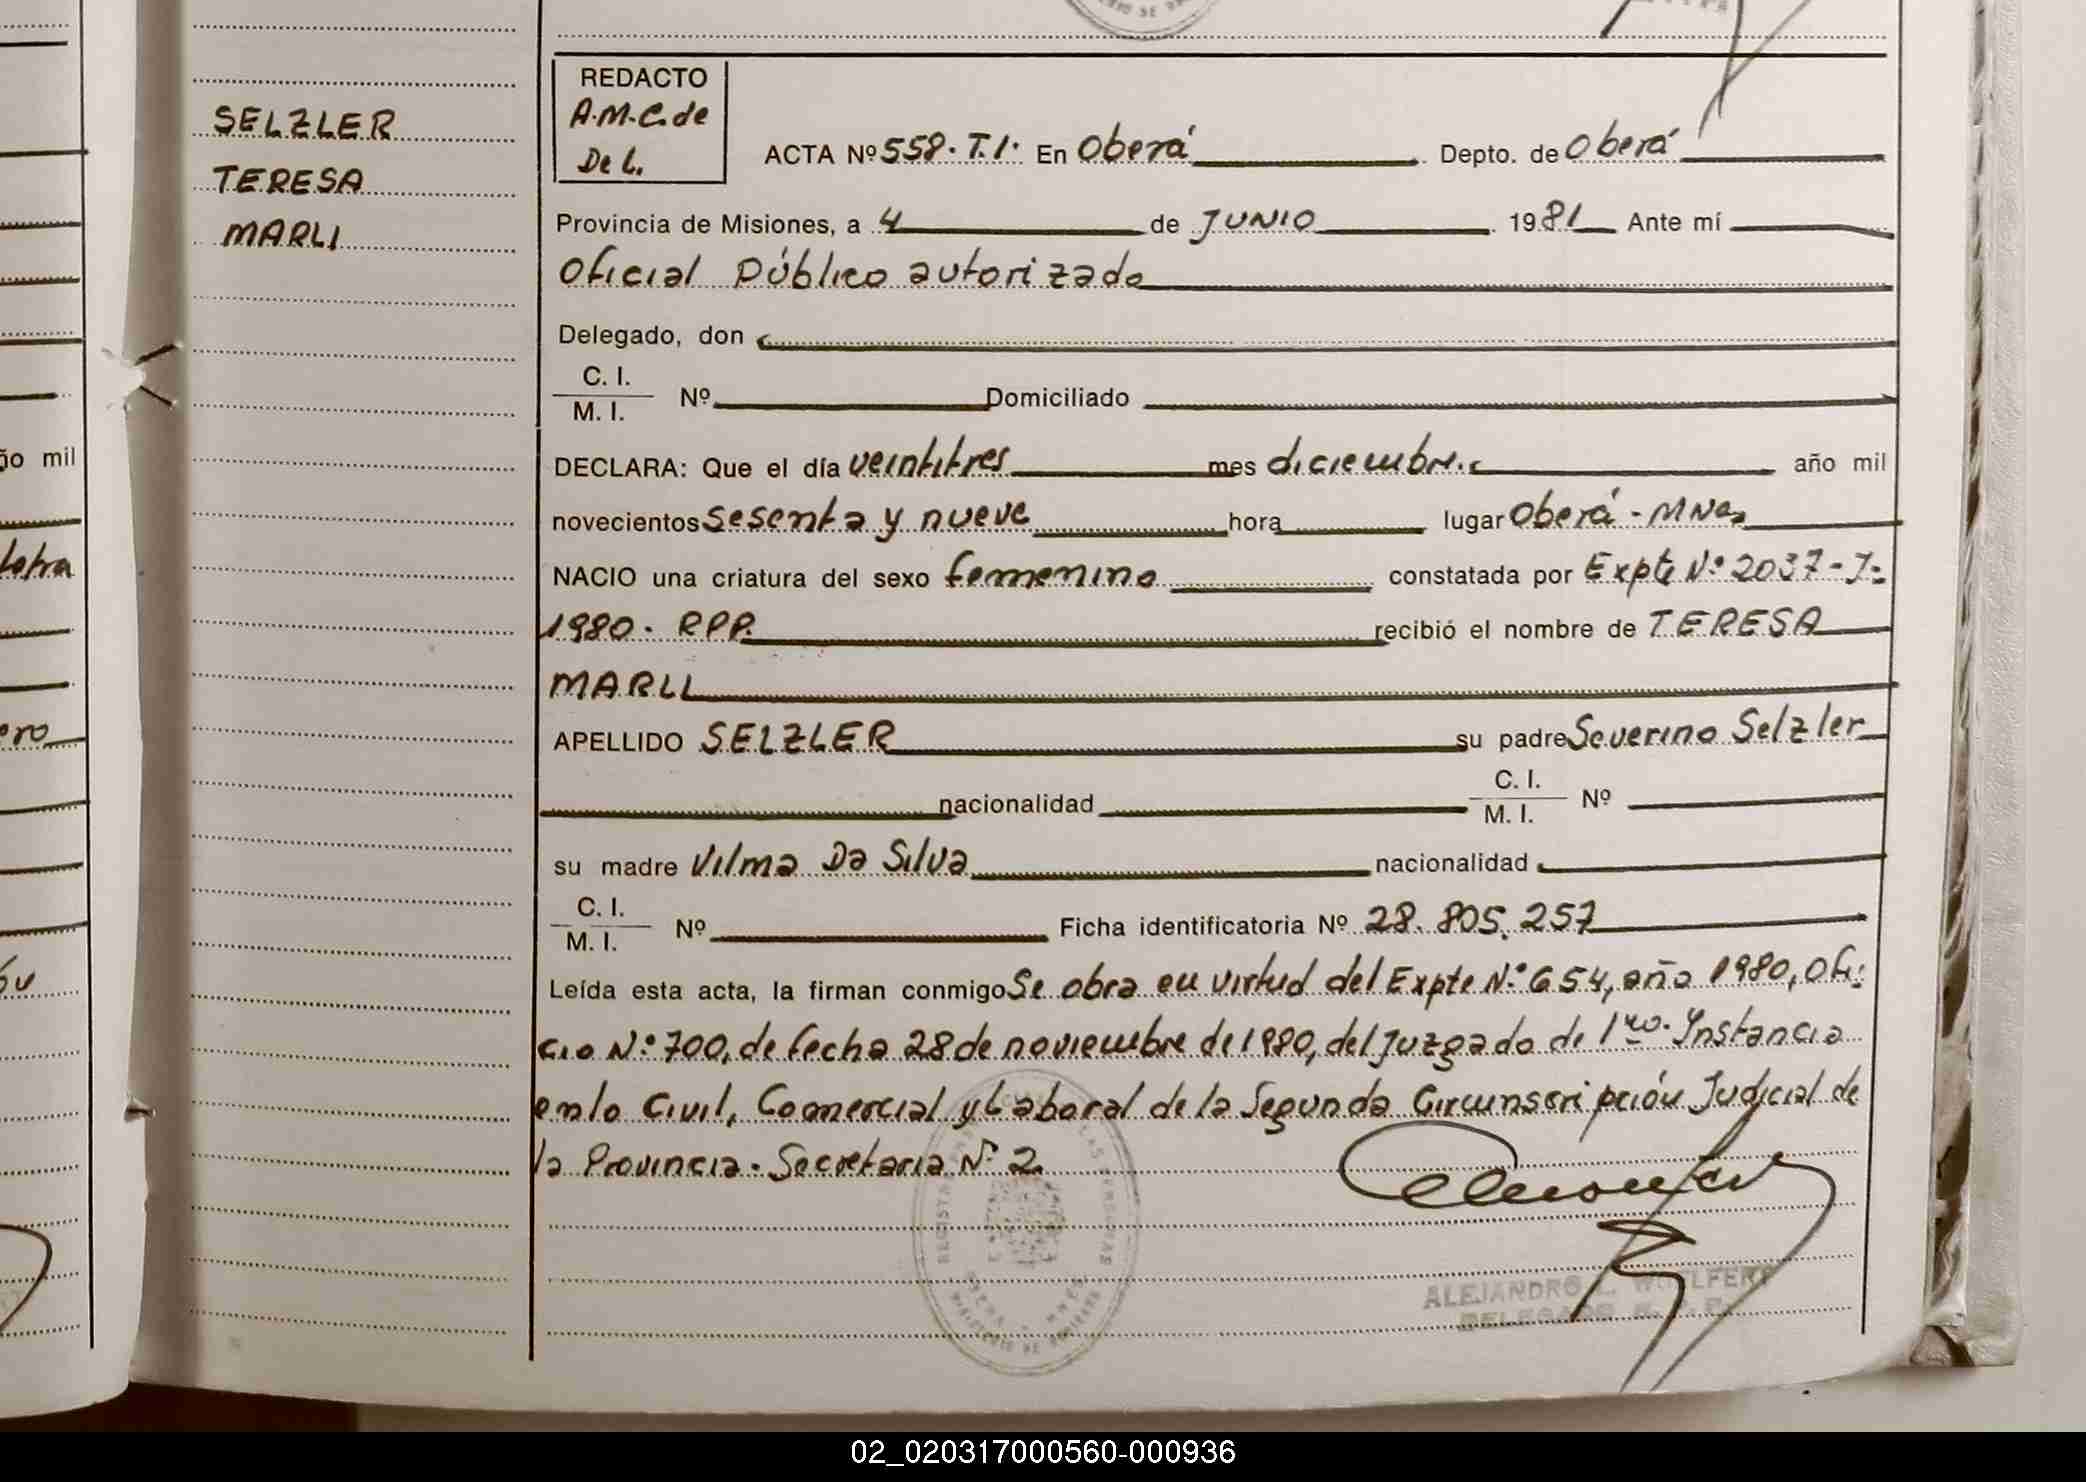 SELZLER
TERESA
MARLI
REDACTO
A.M.C. de
De L.
ACTA Nº 558. T.I. En Oberá Depto. de Oberá
Provincia de Misiones, a 4 de JUNIO 1981 Ante mí
Oficial Público autorizado
Delegado, don
C. I.
M. I. Nº Domiciliado
DECLARA: Que el día veintitres mes diciembre año mil
novecientos sesenta y nueve hora lugar Oberá - Mnes
NACIO una criatura del sexo femenino constatada por Expte Nº 2037-J-
1980. RPP. recibió el nombre de TERESA
MARLI
APELLIDO SELZLER su padre Severino Selzler
nacionalidad C. I.
M. I. Nº
su madre Vilma Da Silva nacionalidad
C. I.
M. I. Nº Ficha identificatoria Nº 28.805.257
Leída esta acta, la firman conmigo Se obra en virtud del Expte Nº 654, año 1980, Ofi-
cio Nº 700, de fecha 28 de noviembre de 1980, del Juzgado de 1ra. Instancia
en lo Civil, Comercial y Laboral de la Segunda Circunscripción Judicial de
la Provincia. Secretaria Nº 2.
ño mil
Letra
ero
ALEJANDRO
DELEGADO
02_020317000560-000936